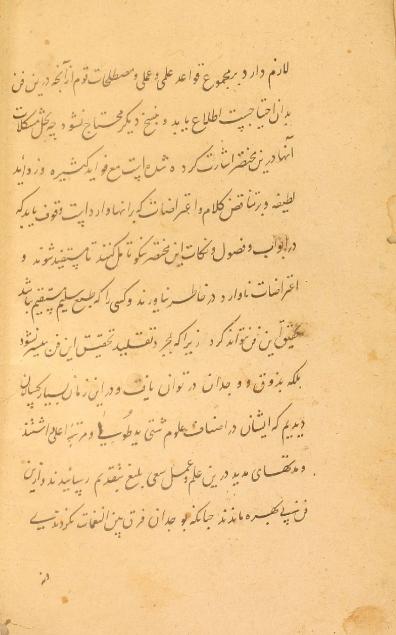 لازم دارد بر مجموع قواعد علمی و عملی و مصطلحات قوم از آنچه درین فن
بدان احتیاجست اطلاع یابد و بنسخ دیگر محتاج نشود چه بحل مشکلات
آنها درین مختصر اشارت کرده شده است مع فواید کثیره و زواید
لطیفه و بر تناقض کلام و اعتراضات که برانها وارد است وقوف یابد که
در ابواب و فصول و نکات این مختصر نیکو تامل کنند تا مستفید شوند و
اعتراضات ناوارد در خاطر نیاورند و کسی را که طبع سلیم مستقیم باشد
تحقیق این فن تواند کرد زیرا که بمجرد تقلید تحقیق این فن میسر نشود
بلکه بذوق و وجدان در توان یافت و درین زمان بسیار کسان
دیدیم که ایشان در اصناف علوم شتی ید طولی و مرتبه اعلی داشتند
و مدتهای مدید درین علم و عمل سعی بلیغ بتقدیم رسانیدند و ازین
فن بی بهره ماندند چنانکه بوجدان فرق بین النغمات نکردندی